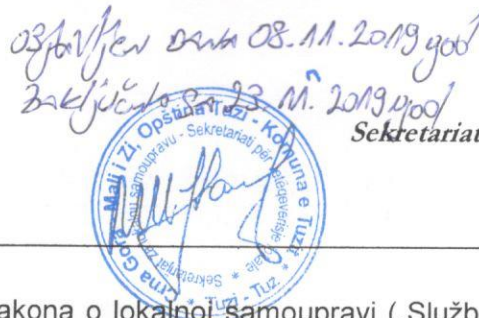 Objavljen dana 08.11.2019 god
Zaključeno sa 23.11.2019 god
Sekretariat
Crna Gora - Mali i Zi, Opština Tuzi - Komuna e Tuzit
Sekretarijat za lokalnu samoupravu - Sekretariati për vetëqeverisje lokale
akona o lokalnoj samoupravi ( Služb